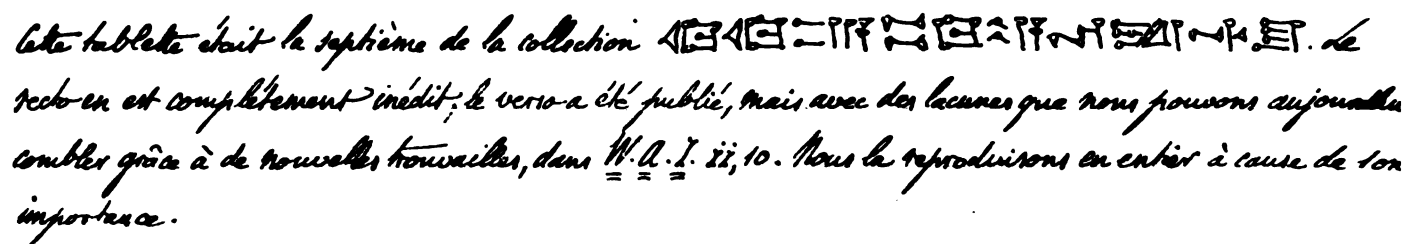 Cette tablette était la septième de la collection. Le
recto en est complètement inédit; le verso a été publié, mais avec des lacunes que nous pouvons aujourd'hui
combler grâce à de nouvelles trouvailles, dans W.A.I. ii, 10. Nous la reproduisons en entier à cause de son
importance.